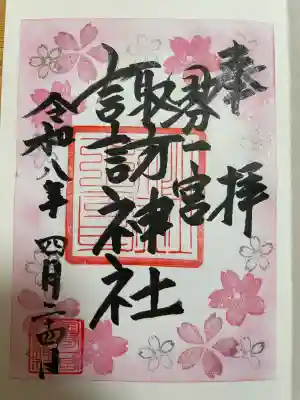 奉拝
宮
諏訪神社
令和八年 四月二十四日